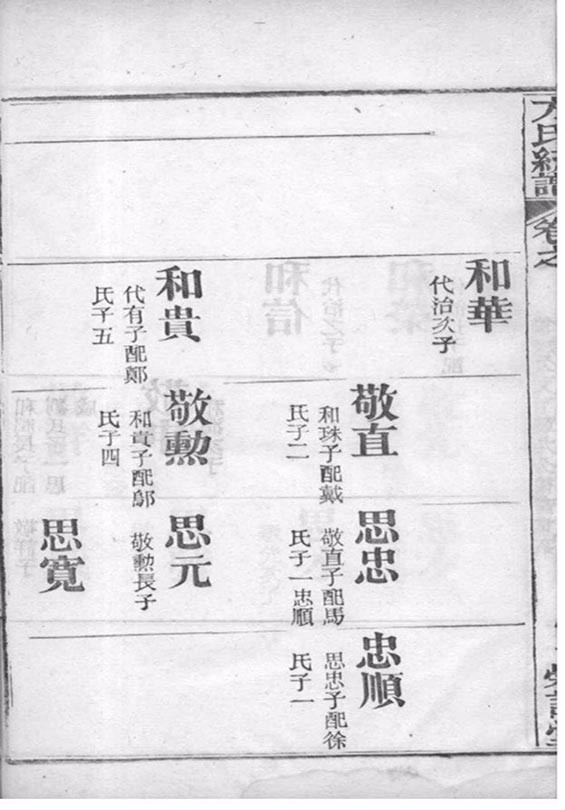 方氏統譜
卷之
和華
代治次子
敬直
和珠子配戴
氏子二
思忠
敬直子配馬
氏子一忠順
忠順
思忠子配徐
氏子一
和貴
代有子配鄭
氏子五
敬勲
和貴子配鄔
氏子四
思元
敬勲長子
思寬